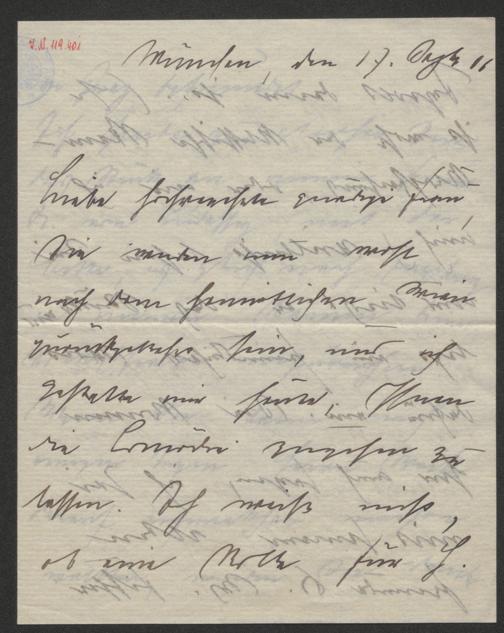 I.N. 119.401
München, den 17. Sept. 16
Liebe hochverehrte gnädige Frau,
Sie werden nun wohl
nach dem heimatlichen Wien
zurückgekehrt sein, und ich
gestatte mir heute, Ihnen
die Comödie zugehen zu
lassen. Ich weiß nicht,
ob eine Rolle für H.